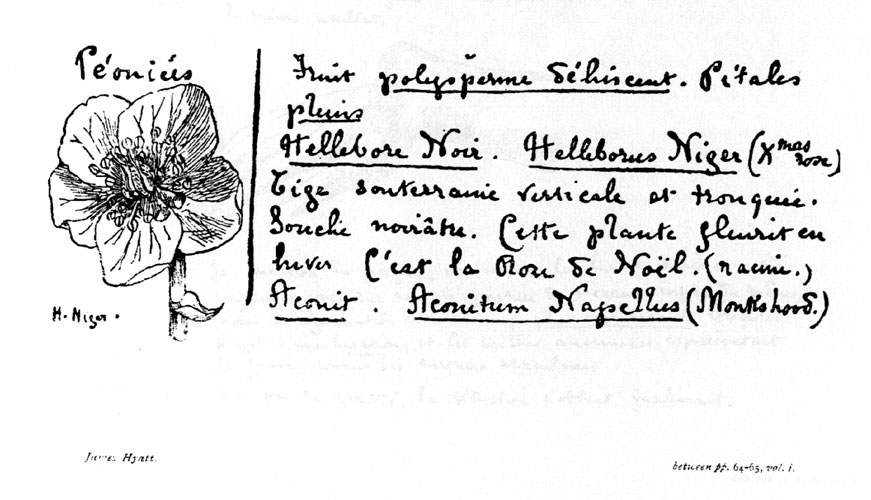 Péoniées
Fruit polysperme déhiscent. Pétales
pleins
Hellebore Noir. Helleborus Niger (Xmas rose)
Tige souterraine verticale et tronquée.
Souche noirâtre. Cette plante fleurit en
hiver C'est la Rose de Noël. (racine.)
Aconit. Aconitum Napellus (Monkshood.)
H. Niger.
James Hyatt.
between pp. 64-65, vol. i.